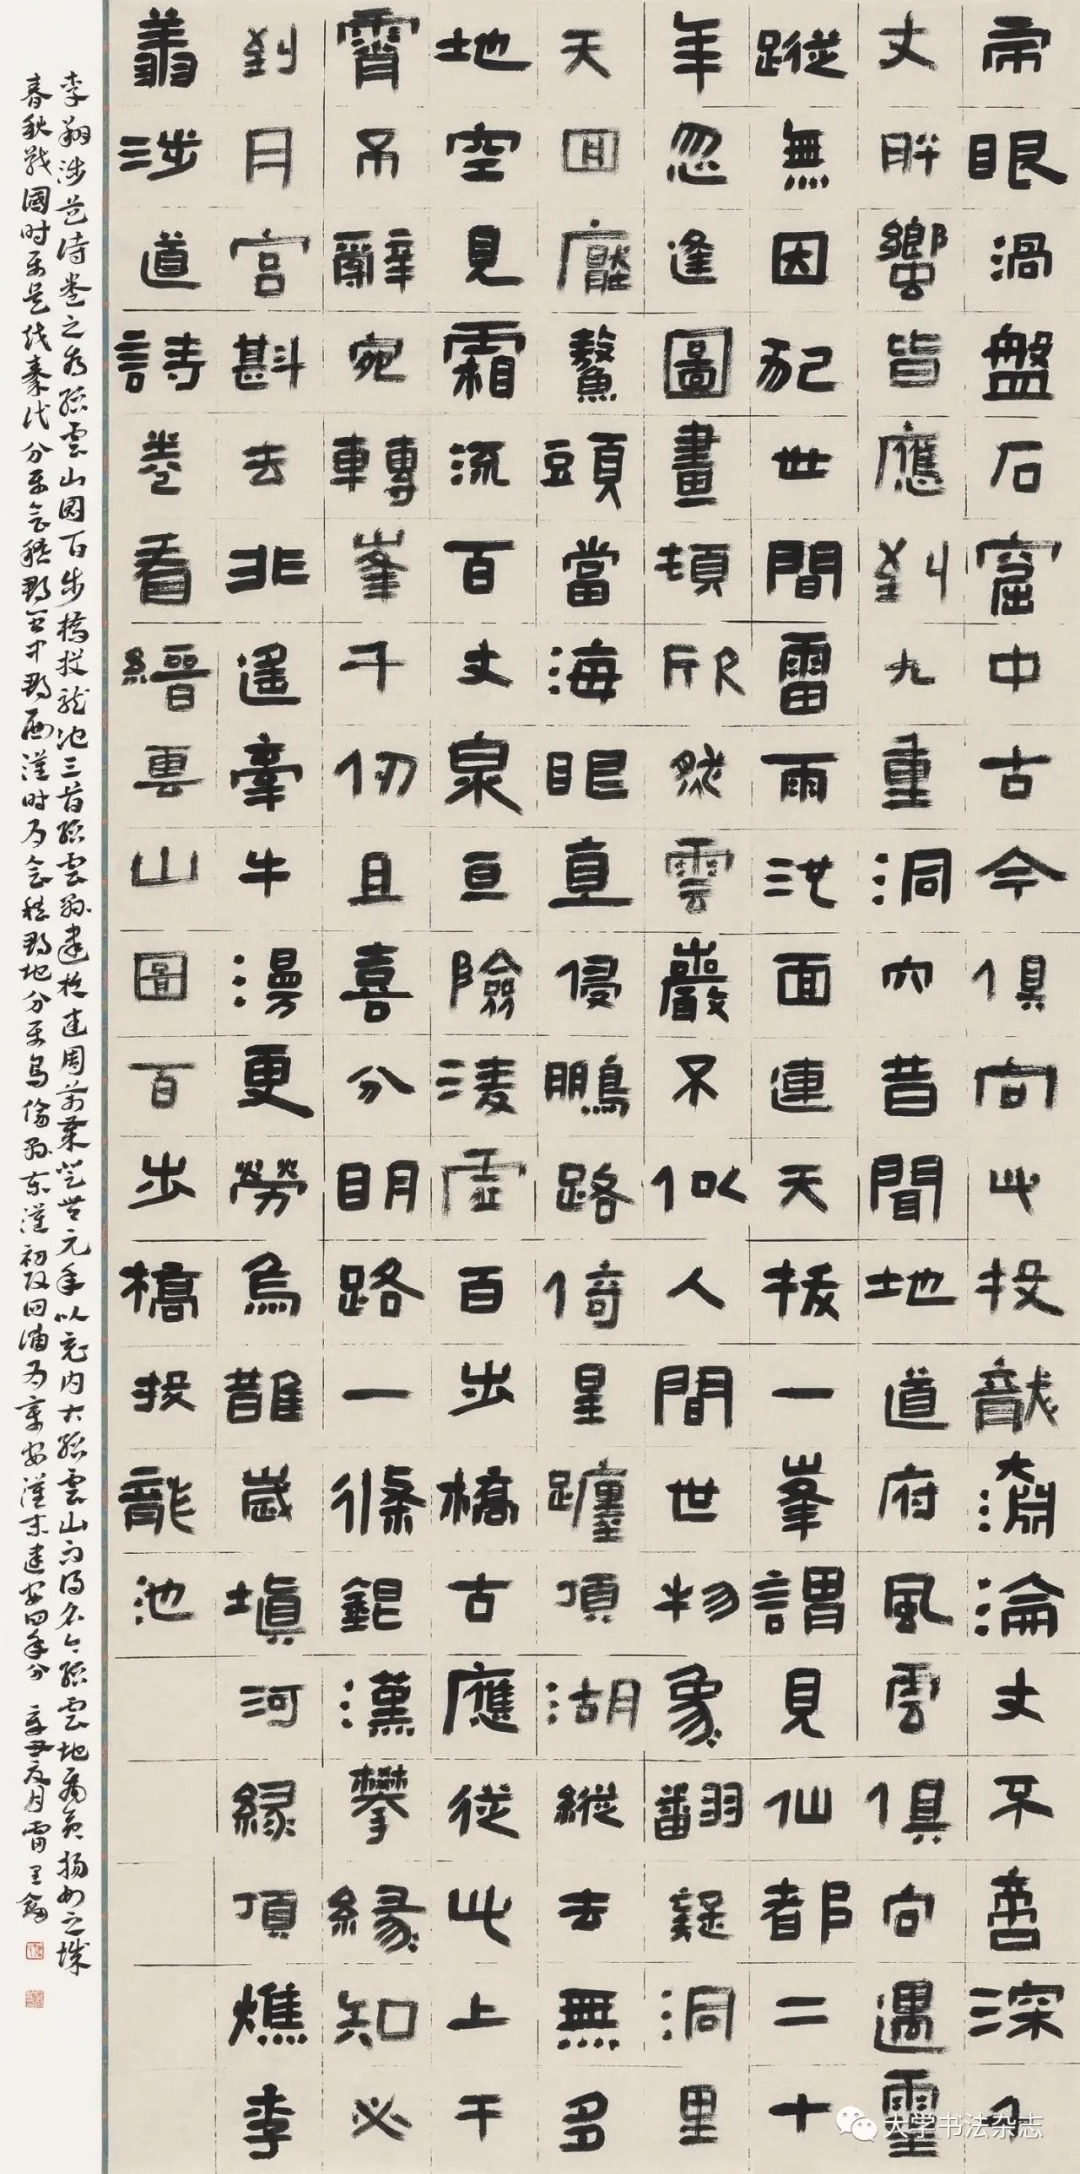 帝眼渦盤石窟中古今俱向此投龍淵淪丈不啻深千
丈肸蠁皆應到九重洞內昔聞地道府風雲俱向遇靈
蹤無因世間雷雨洗面連天拔一峯謂見仙都二十
年忽逢圖畫頓欣然雲巖不似人間世物象翻疑洞里
天回壓鰲頭當海眼直侵鵬路倚星躔頂湖縱去無多
地空見霜流百丈泉亘險淩虛百步橋古應從此上干
霄不辭宛轉峯千仞且喜分明路一條銀漢攀緣知必
到月宮斟去非遙牽牛漫更勞烏鵲歲填河緣頂燋李
翔涉道詩卷看縉雲山圖百步橋投龍池
李翔涉道詩卷之為縉雲山圖百步橋投龍池三首縉雲縣建於武周萬歲登封元年以境內大縉雲山而得名今縉雲地為揚州之域
春秋戰國時屬越秦代分屬會稽郡閩中郡西漢時為會稽郡地分屬烏傷縣東漢初改回浦為章安漢末建安四年分 辛丑夏月
大学书法杂志